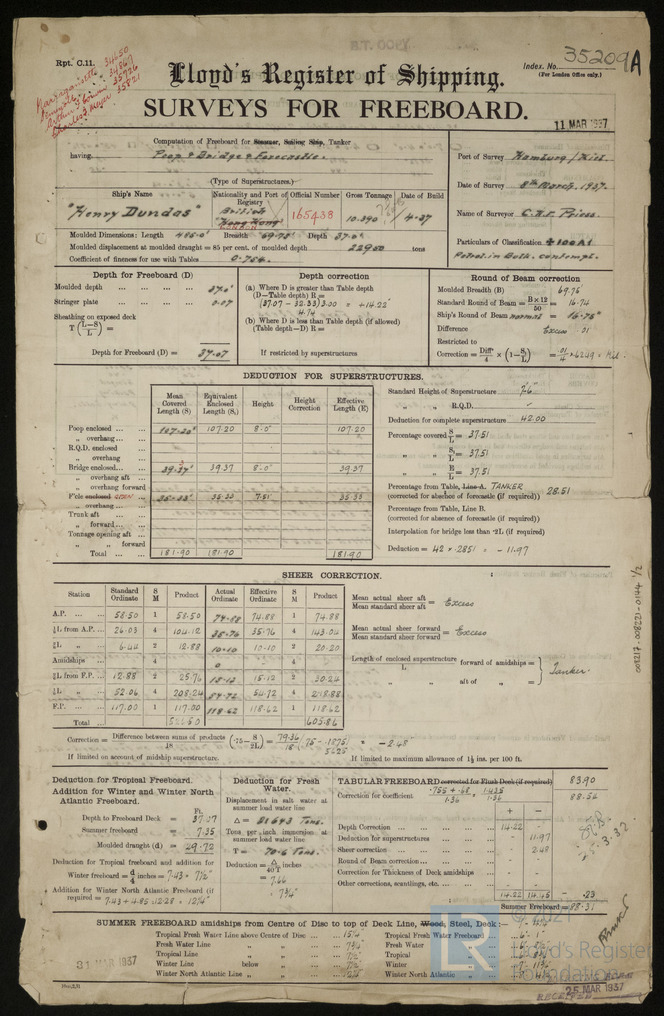 Rpt. C.11.
Index. No. 35209A
(For London Office only.)
34650
35726
35821
Lloyd's Register of Shipping.
SURVEYS FOR FREEBOARD.
11 MAR 1937
Computation of Freeboard for Steamer, Sailing Ship, Tanker
having Poop & Bridge & Forecastle.
(Type of Superstructures.)
Port of Survey Hamburg / Kiel.
Date of Survey 8th March, 1937.
Name of Surveyor
Particulars of Classification +100A1
Petrol. in Bulk. contempt.
Ship's Name Nationality and Port of Registry Official Number Gross Tonnage Date of Build
"Henry Dundas" British Hong Kong LONDON 165438 10.390 4-37
Moulded Dimensions: Length 485.0' Breadth 69.75' Depth 37.0'
Moulded displacement at moulded draught = 85 per cent. of moulded depth 22900 tons
Coefficient of fineness for use with Tables 0.754.
Depth for Freeboard (D)
Moulded depth 37.0'
Stringer plate 0.07
Sheathing on exposed deck
T (L-S / L) =
Depth for Freeboard (D) = 37.07
Depth correction
(a) Where D is greater than Table depth
(D—Table depth) R =
(37.07 - 32.33) 3.00 = + 14.22"
4.74
(b) Where D is less than Table depth (if allowed)
(Table depth—D) R =
If restricted by superstructures
Round of Beam correction
Moulded Breadth (B) 69.75
Standard Round of Beam = B×12 / 50 = 16.74
Ship's Round of Beam normal = 16.75"
Difference Excess .01
Restricted to
Correction = Diffce / 4 × (1 - S1 / L) = .01 / 4 × .6249 = Nil.
DEDUCTION FOR SUPERSTRUCTURES.
Mean Covered Length (S) Equivalent Enclosed Length (S1) Height Height Correction Effective Length (E)
Poop enclosed 107.20' 107.20 8'.0" 107.20
„ overhang
R.Q.D. enclosed
„ overhang
Bridge enclosed 39.37 39.37 8'.0" 39.37
„ overhang aft
„ overhang forward
F'cle enclosed OPEN 35.33' 35.33 7.51' 35.33
„ overhang
Trunk aft
„ forward
Tonnage opening aft
„ „ forward
Total 181.90 181.90 181.90
Standard Height of Superstructure 7'.6"
„ „ R.Q.D. -
Deduction for complete superstructure 42.00
Percentage covered S / L = 37.51
„ „ S1 / L = 37.51
„ „ E / L = 37.51
Percentage from Table, Line A. TANKER
(corrected for absence of forecastle (if required)) 28.51
Percentage from Table, Line B.
(corrected for absence of forecastle (if required))
Interpolation for bridge less than ·2L (if required)
Deduction = 42 × .2851 = - 11.97
SHEER CORRECTION.
Station Standard Ordinate S M Product Actual Ordinate Effective Ordinate S M Product
A.P. 58.50 1 58.50 74.88 74.88 1 74.88
⅙L from A.P. 26.03 4 104.12 35.76 35.76 4 143.04
⅓L „ 6.44 2 12.88 10.10 10.10 2 20.20
Amidships 4 0 4
⅓L from F.P. 12.88 2 25.76 15.12 15.12 2 30.24
⅙L „ 52.06 4 208.24 54.72 54.72 4 218.88
F.P. 117.00 1 117.00 118.62 118.62 1 118.62
Total 526.50 605.86
Mean actual sheer aft / Mean standard sheer aft = Excess
Mean actual sheer forward / Mean standard sheer forward = Excess
Length of enclosed superstructure / L forward of amidships =
„ „ aft of „ =
Tanker.
Correction = Difference between sums of products / 18 (·75 - S / 2L) = 79.36 / 18 (.75 - .1875) .5625 = - 2.48
If limited on account of midship superstructure.
If limited to maximum allowance of 1½ ins. per 100 ft.
008217-008221-0144 1/2
Deduction for Tropical Freeboard.
Addition for Winter and Winter North Atlantic Freeboard.
Ft.
Depth to Freeboard Deck = 37.07
Summer freeboard = 7.35
Moulded draught (d) = 29.72
Deduction for Tropical freeboard and addition for
Winter freeboard = d / 4 inches = 7.43 = 7½"
Addition for Winter North Atlantic Freeboard (if
required) = 7.43 + 4.85 = 12.28 = 12¼"
Deduction for Fresh Water.
Displacement in salt water at
summer load water line
Δ = 21643 Tons.
Tons per inch immersion at
summer load water line
T = 70.6 Tons.
Deduction = Δ / 40T inches
= 7.66
= 7¾"
TABULAR FREEBOARD corrected for Flush Deck (if required) 83.90
Correction for coefficient .755 + .68 / 1.36 = 1.435 / 1.36 88.54
+ -
Depth Correction 14.22
Deduction for superstructures 11.97
Sheer correction 2.48
Round of Beam correction - -
Correction for Thickness of Deck amidships - -
Other corrections, scantlings, etc. - -
14.22 14.45 - .23
Summer Freeboard = 88.31
SUMMER FREEBOARD amidships from Centre of Disc to top of Deck Line, Wood, Steel, Deck:—
Tropical Fresh Water Line above Centre of Disc 15¼
Fresh Water Line „ „ 7¾"
Tropical Line „ „ 7½"
Winter Line below „ „ 7½"
Winter North Atlantic Line „ „ 12¼
Tropical Fresh Water Freeboard 6. 1"
Fresh Water „
Tropical „
Winter „
Winter North Atlantic „
31 MAR 1937
25 MAR 1937
RECEIVED
LR
© 2021
Lloyd's Register
Foundation